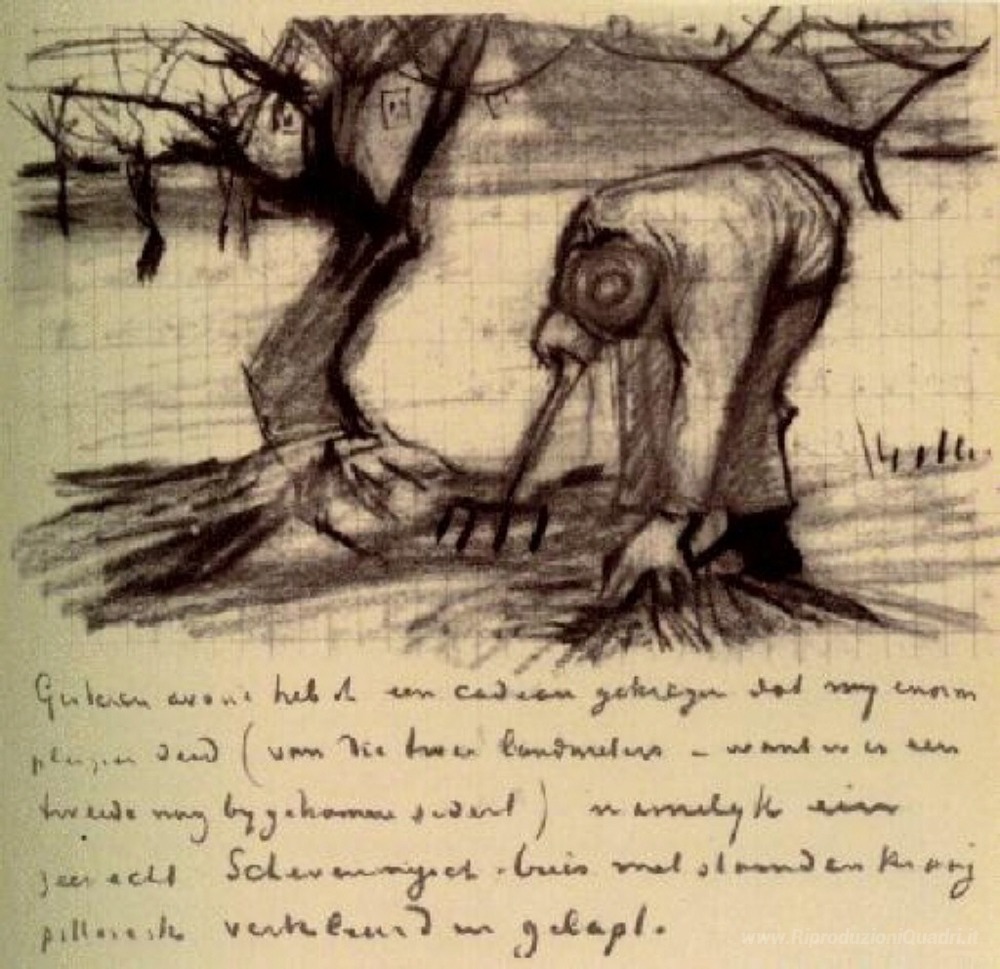 Gisteren avond heb ik een cadeau gekregen dat my enorm
plezier deed (van die twee landmeters – want er is een
tweede nog bygekomen sedert) namelyk een
zeer echt Schevenings buis met staanden kraag
pittoresk verkleurd en gelapt.
www.RiproduzioniQuadri.it